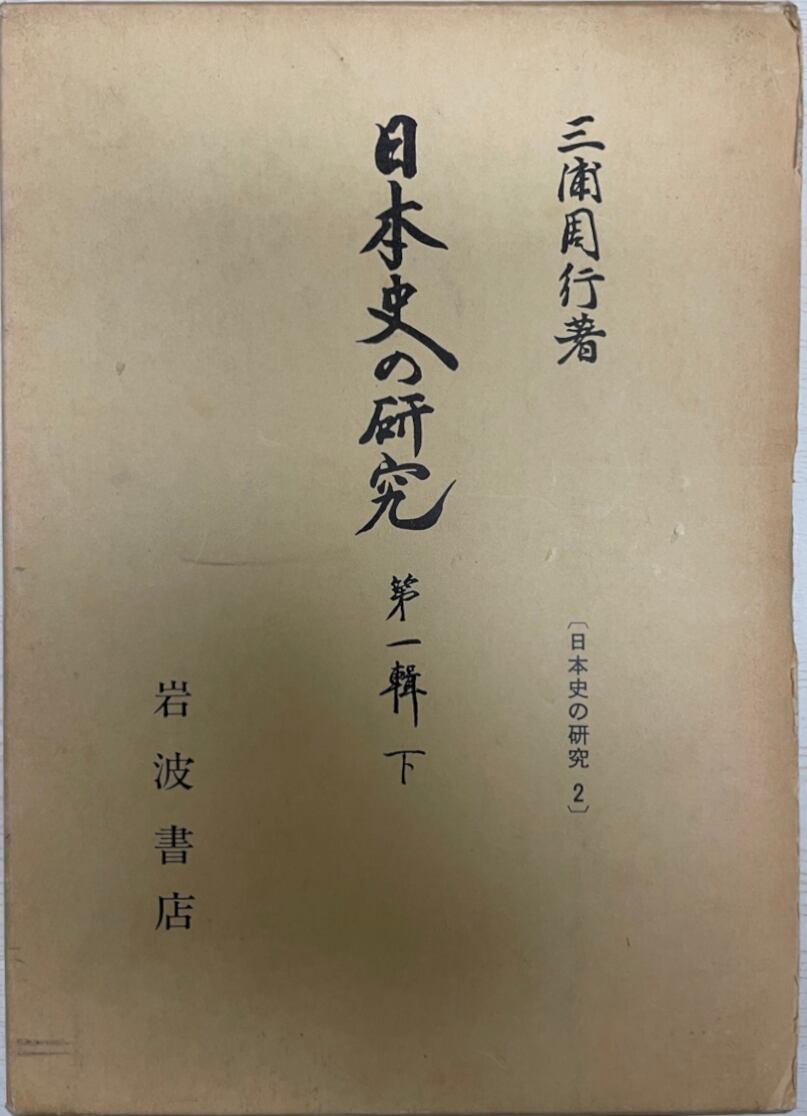 三浦周行著
〔日本史の研究 2〕
日本史の研究 第一輯 下
岩波書店